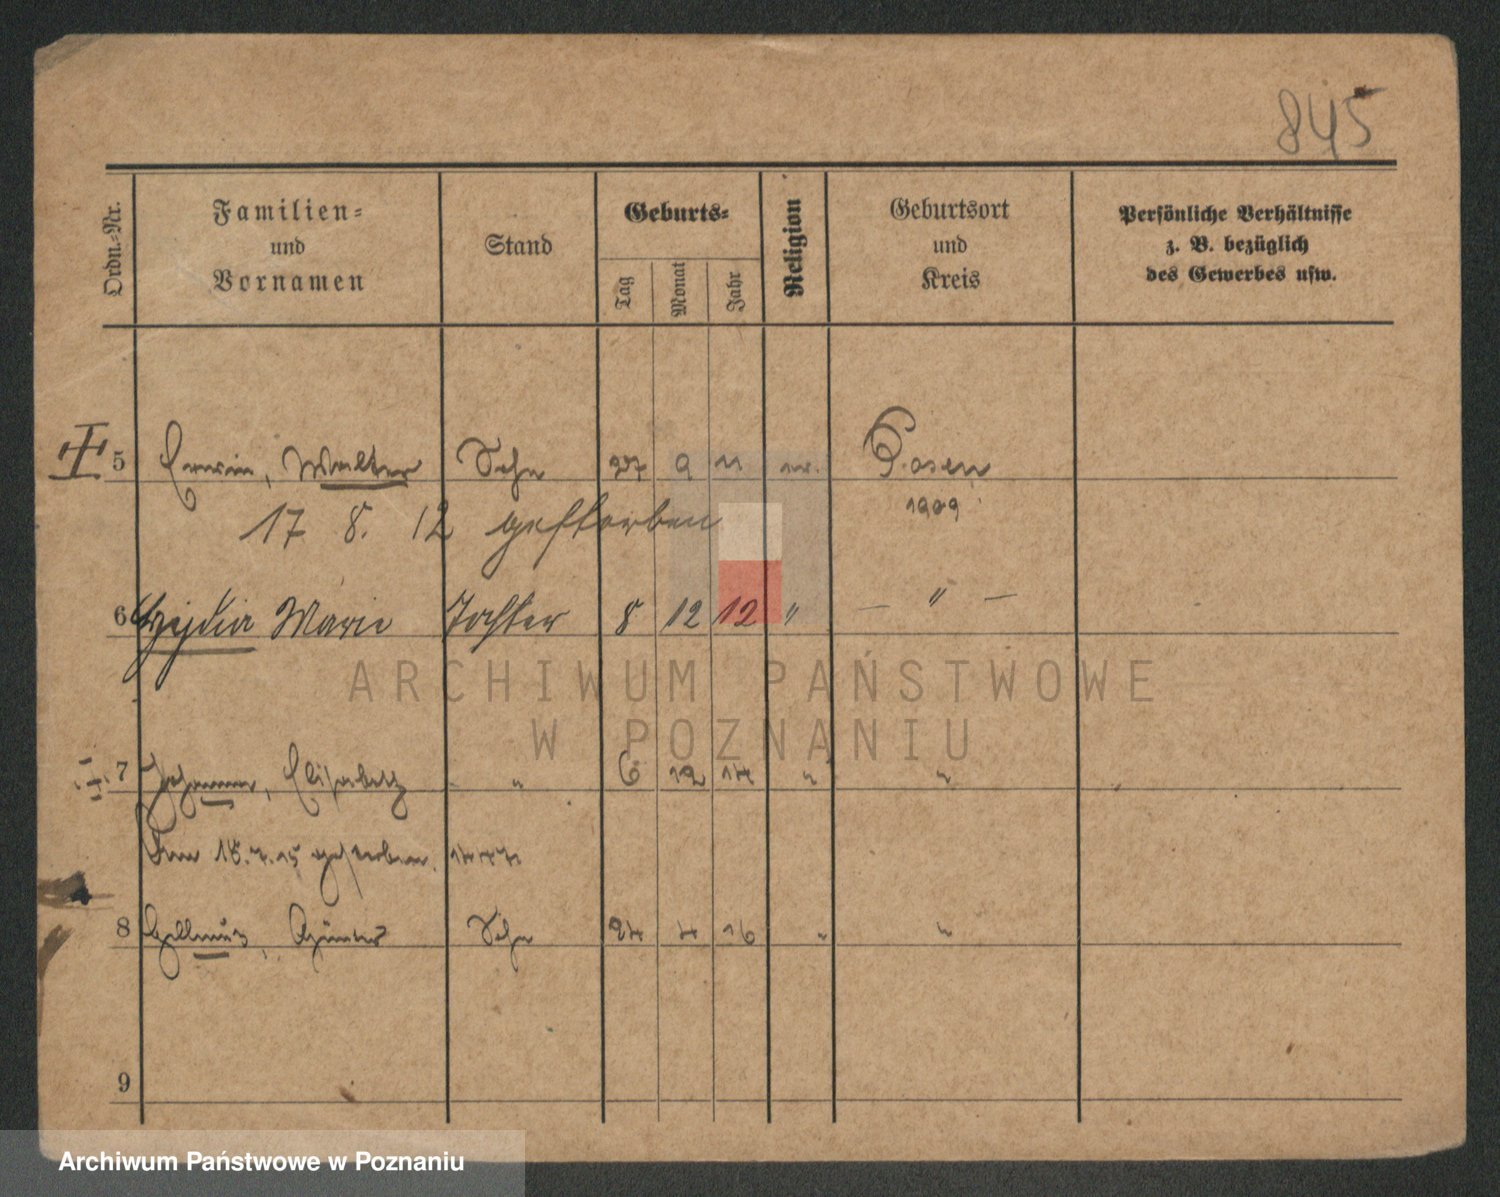 845
Ordn.-Nr.
Familien- und Vornamen
Stand
Geburts-
Tag
Monat
Jahr
Religion
Geburtsort und Kreis
Persönliche Verhältnisse z. B. bezüglich des Gewerbes usw.
5 Erwin, Walter Sohn 27 9 11 Posen
17 8. 12 gestorben 1909
6 Lydia Marie Tochter 8 12 12 " — " —
7 Johanna, Elisabeth " 6 12 14 " "
18.7.15 gestorben.
8 Hellmut, Günter Sohn 24 4 16 " "
9
ARCHIWUM PAŃSTWOWE
W POZNANIU
Archiwum Państwowe w Poznaniu